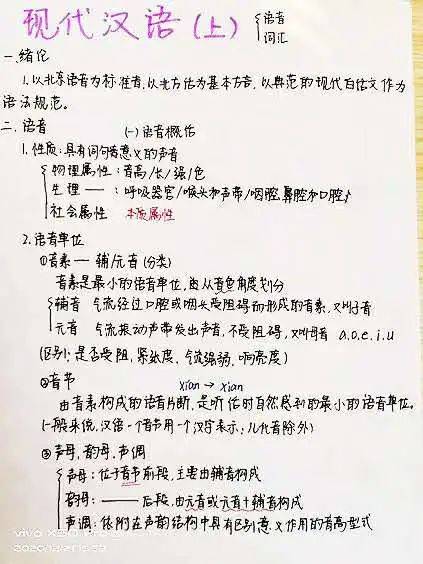 现代汉语(上) {语音 词汇
一.绪论
1.以北京语音为标准音,以北方话为基本方言,以典范的现代白话文作为
语法规范。
二.语音
(一)语音概论
1.性质:具有词句意义的声音
物理属性:音高/长/强/色
生理——:呼吸器官/喉头和声带/咽腔,鼻腔和口腔
社会属性 本质属性
2.语音单位
①音素—辅/元音(分类)
音素是最小的语音单位,由从音色角度划分
辅音 气流经过口腔或咽头受阻碍而形成的音素,又叫子音
元音 气流振动声带发出声音,不受阻碍,又叫母音 a.o.e.i.u
(区别:是否受阻,紧张度,气流强弱,响亮度)
②音节 xian → xian
由音素构成的语音片断,是听话时自然感到的最小的语音单位。
(一般来说,汉语一个音节用一个汉字表示,儿化音除外)
③声母,韵母,声调
声母:位于音节前段,主要由辅音构成
韵母:——后段,由元音或元音+辅音构成
声调:依附在声韵结构中具有区别意义作用的音高型式
vivo X23